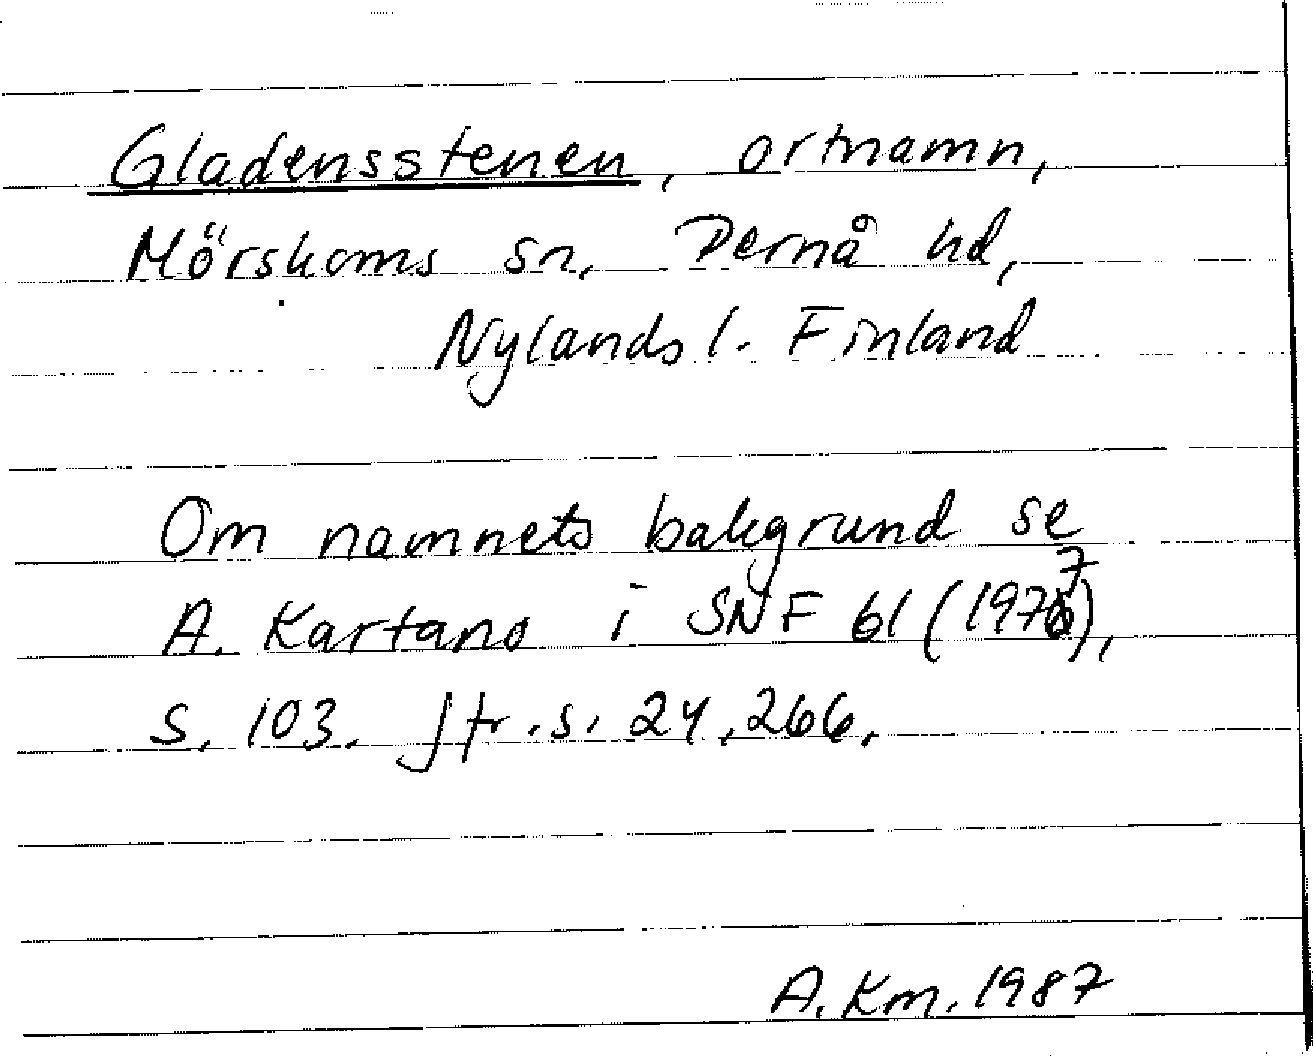 Gladensstenen, ortnamn,
Mörskoms sn, Pernå hd,
Nylands l. Finland
Om namnets bakgrund se
A. Kartano i SNF 61 (1977),
s. 103. Jfr. s. 24, 266.
A. Km. 1987